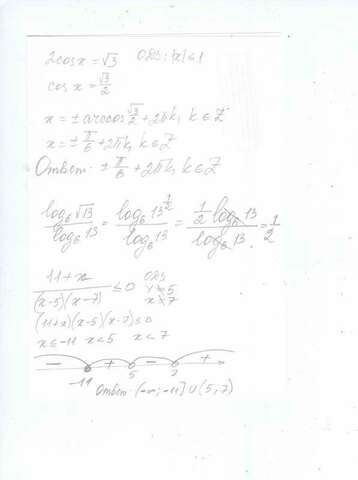 2cosx = √3 ОДЗ: |x| ≤ 1
cos x = √3/2
x = ± arccos √3/2 + 2πk, k ∈ Z
x = ± π/6 + 2πk, k ∈ Z
Ответ: ± π/6 + 2πk, k ∈ Z
log₆√13 / log₆13 = log₆13^(1/2) / log₆13 = 1/2 log₆13 / log₆13 = 1/2
11+x / (x-5)(x-7) ≤ 0 ОДЗ
x ≠ 5
x ≠ 7
(11+x)(x-5)(x-7) ≤ 0
x ≤ -11 x < 5 x < 7
- + - +
-11 5 7
Ответ: (-∞; -11] ∪ (5; 7)